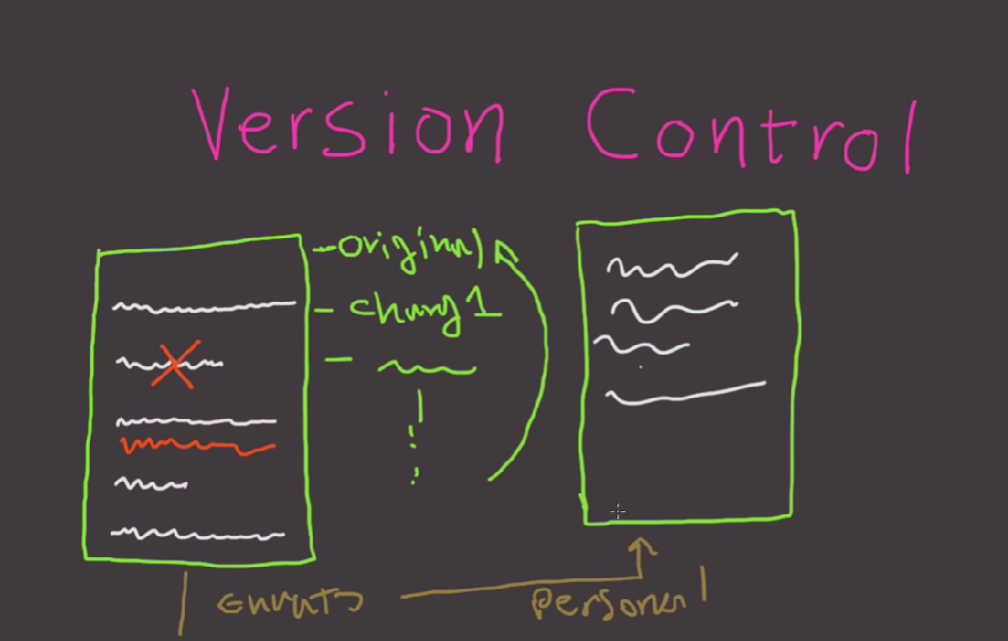 Version Control
-original
- chang1
-
personal